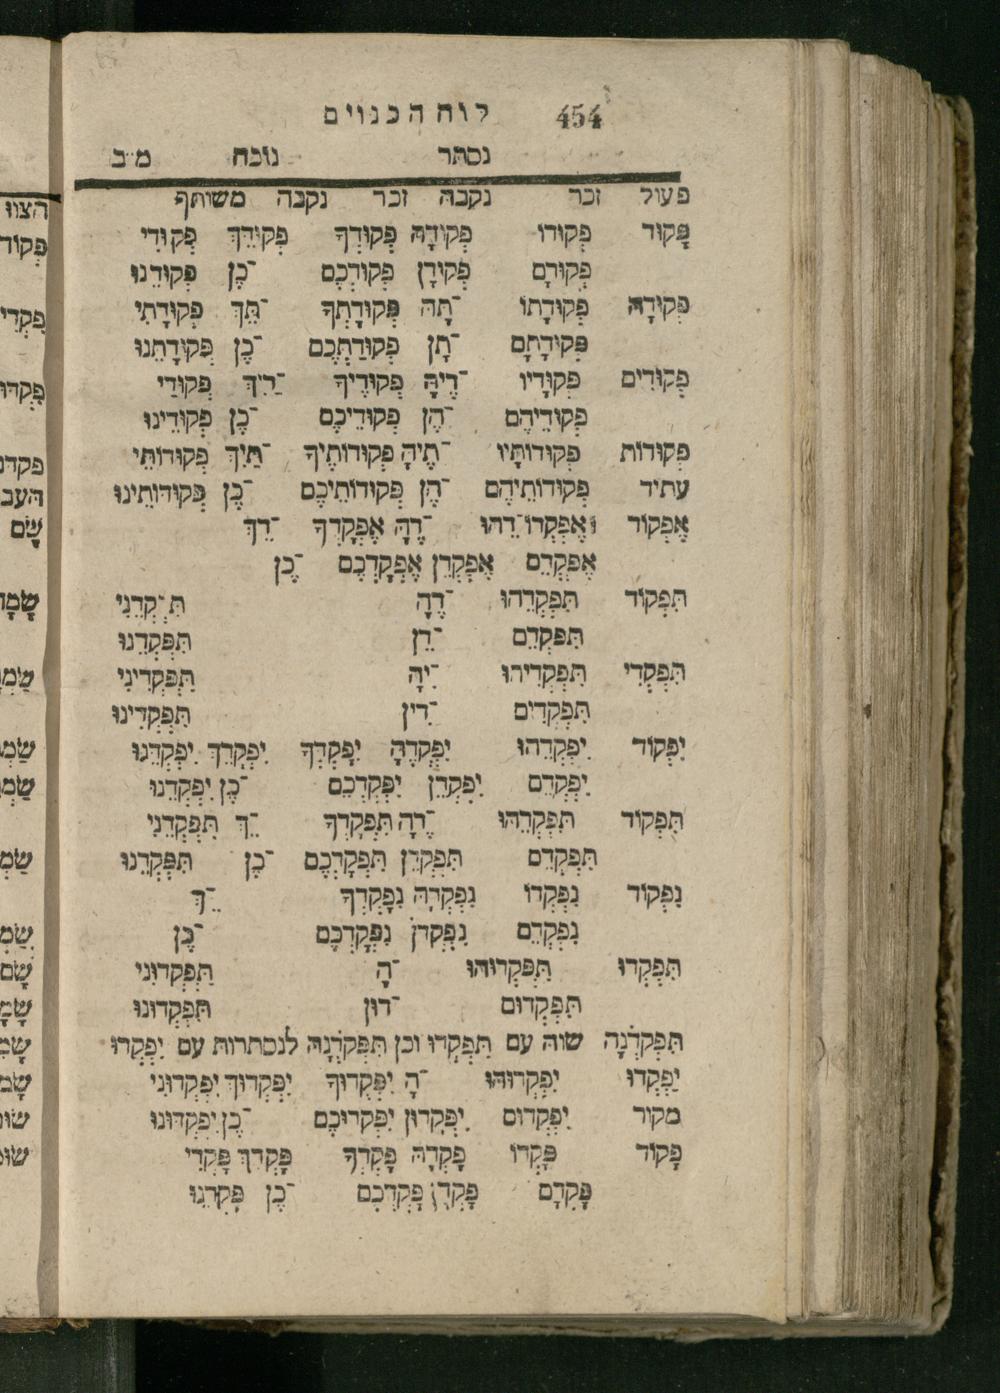 454 לוח הכנוים
נסתר נוכח מב
פעול זכר נקבה זכר נקבה משותף
פָּקוּד פְּקוּדוֹ פְּקוּדָהּ פְּקוּדְךָ פְּקוּדֵךְ פְּקוּדִי
פְּקוּדָם פְּקוּדָן פְּקוּדְכֶם ־כֶן פְּקוּדֵנוּ
פְּקוּדָה פְּקוּדָתוֹ ־תָהּ פְּקוּדָתְךָ ־תֵךְ פְּקוּדָתִי
פְּקוּדָתָם ־תָן פְּקוּדַתְכֶם ־כֶן פְּקוּדָתֵנוּ
פְּקוּדִים פְּקוּדָיו ־דֶיהָ פְּקוּדֶיךָ ־דַיִךְ פְּקוּדַי
פְּקוּדֵיהֶם ־הֶן פְּקוּדֵיכֶם ־כֶן פְּקוּדֵינוּ
פְּקוּדוֹת פְּקוּדוֹתָיו ־תֶיהָ פְּקוּדוֹתֶיךָ ־תַיִךְ פְּקוּדוֹתַי
עתיד פְּקוּדוֹתֵיהֶם ־הֶן פְּקוּדוֹתֵיכֶם ־כֶן פְּקוּדוֹתֵינוּ
אֶפְקוֹד אֶפְקְדוֹ־דֵהוּ ־דֶהָ אֶפְקָדְךָ ־דֵךְ
אֶפְקְדֵם אֶפְקְדֵן אֶפְקָדְכֶם ־כֶן
תִּפְקוֹד תִּפְקְדֵהוּ ־דֶהָ תִּפְקְדֵנִי
תִּפְקְדֵם ־דֵן תִּפְקְדֵנוּ
תִּפְקְדִי תִּפְקְדִיהוּ ־יהָ תִּפְקְדִינִי
תִּפְקְדִים ־דִין תִּפְקְדִינוּ
יִפְקוֹד יִפְקְדֵהוּ יִפְקְדֶהָ יִפְקָדְךָ יִפְקְדֵךְ יִפְקְדֵנוּ
יִפְקְדֵם יִפְקְדֵן יִפְקָדְכֶם ־כֶן יִפְקְדֵנוּ
תִּפְקוֹד תִּפְקְדֵהוּ ־דֶהָ תִּפְקָדְךָ ־ךְ תִּפְקְדֵנִי
תִּפְקְדֵם תִּפְקְדֵן תִּפְקָדְכֶם ־כֶן תִּפְקְדֵנוּ
נִפְקוֹד נִפְקְדוֹ נִפְקְדָהּ נִפְקָדְךָ ־ךְ
נִפְקְדֵם נִפְקְדֵן נִפְקָדְכֶם ־כֶן
תִּפְקְדוּ תִּפְקְדוּהוּ ־הָ תִּפְקְדוּנִי
תִּפְקְדוּם ־דוּן תִּפְקְדוּנוּ
תִּפְקֹדְנָה שוה עם תִּפְקְדוּ וכן תִּפְקֹדְנָה לנסתרות עם יִפְקְדוּ
יִפְקְדוּ יִפְקְדוּהוּ ־הָ יִפְקְדוּךָ יִפְקְדוּךְ יִפְקְדוּנִי
מקור יִפְקְדוּם יִפְקְדוּן יִפְקְדוּכֶם ־כֶן יִפְקְדוּנוּ
פָּקוֹד פָּקְדוֹ פָּקְדָהּ פָּקְדְךָ פָּקְדֵךְ פָּקְדִי
פָּקְדָם פָּקְדָן פָּקְדְכֶם ־כֶן פָּקְדֵנוּ